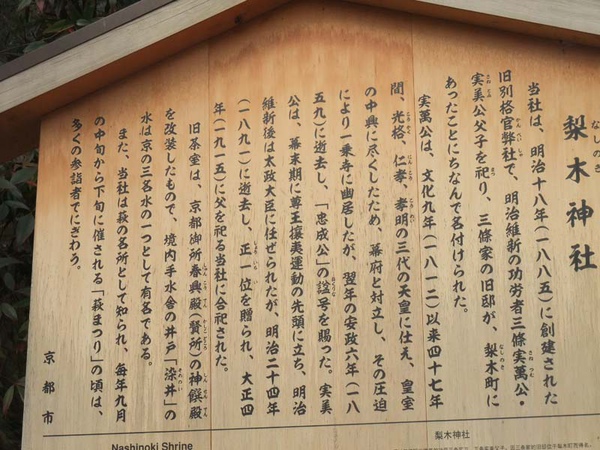 梨木神社
なしのき
当社は、明治十八年(一八八五)に創建された
旧別格官弊社で、明治維新の功労者三條実萬公・
実美公父子を祀り、三條家の旧邸が、梨木町に
あったことにちなんで名付けられた。
実萬公は、文化九年(一八一二)以来四十七年
間、光格、仁孝、孝明の三代の天皇に仕え、皇室
の中興に尽くしたため、幕府と対立し、その圧迫
により一乗寺に幽居したが、翌年の安政六年(一八
五九)に逝去し、「忠成公」の諡号を賜った。実美
公は、幕末期に尊王攘夷運動の先頭に立ち、明治
維新後は太政大臣に任ぜられたが、明治二十四年
(一八九一)に逝去し、正一位を贈られ、大正四
年(一九一五)に父を祀る当社に合祀された。
旧茶室は、京都御所春興殿(賢所)の神饌殿
を改装したもので、境内手水舎の井戸「染井」の
水は京の三名水の一つとして有名である。
また、当社は萩の名所として知られ、毎年九月
の中旬から下旬に催される「萩まつり」の頃は、
多くの参詣者でにぎわう。
京都市
Nashinoki Shrine
梨木神社